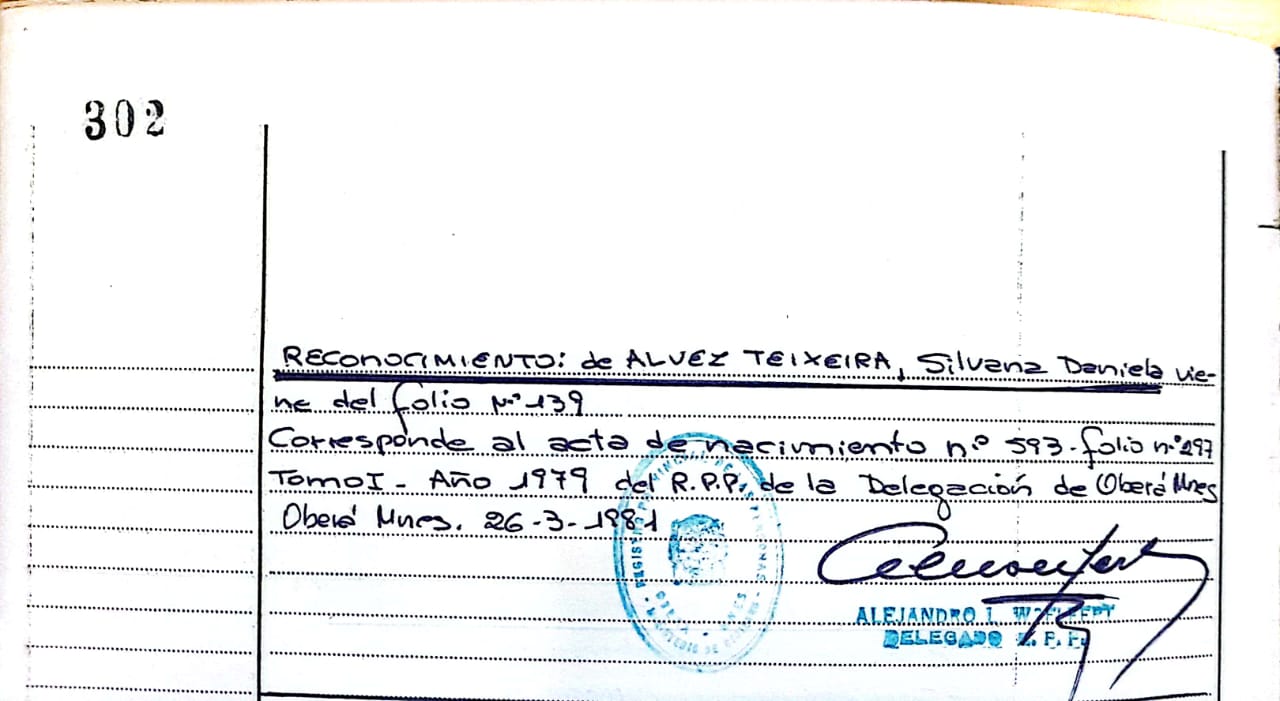 302
RECONOCIMIENTO: de ALVEZ TEIXEIRA, Silvana Daniela vie-
ne del folio Nº 139
Corresponde al acta de nacimiento nº 593 - folio nº 297
Tomo I - Año 1979 del R.P.P. de la Delegación de Oberá Mnes
Oberá Mnes. 26-3-1981
REGISTRO PROVINCIAL DE LAS PERSONAS
OBERA - MNES
MINISTERIO DE GOBIERNO
ALEJANDRO I.
DELEGADO R. P. P.